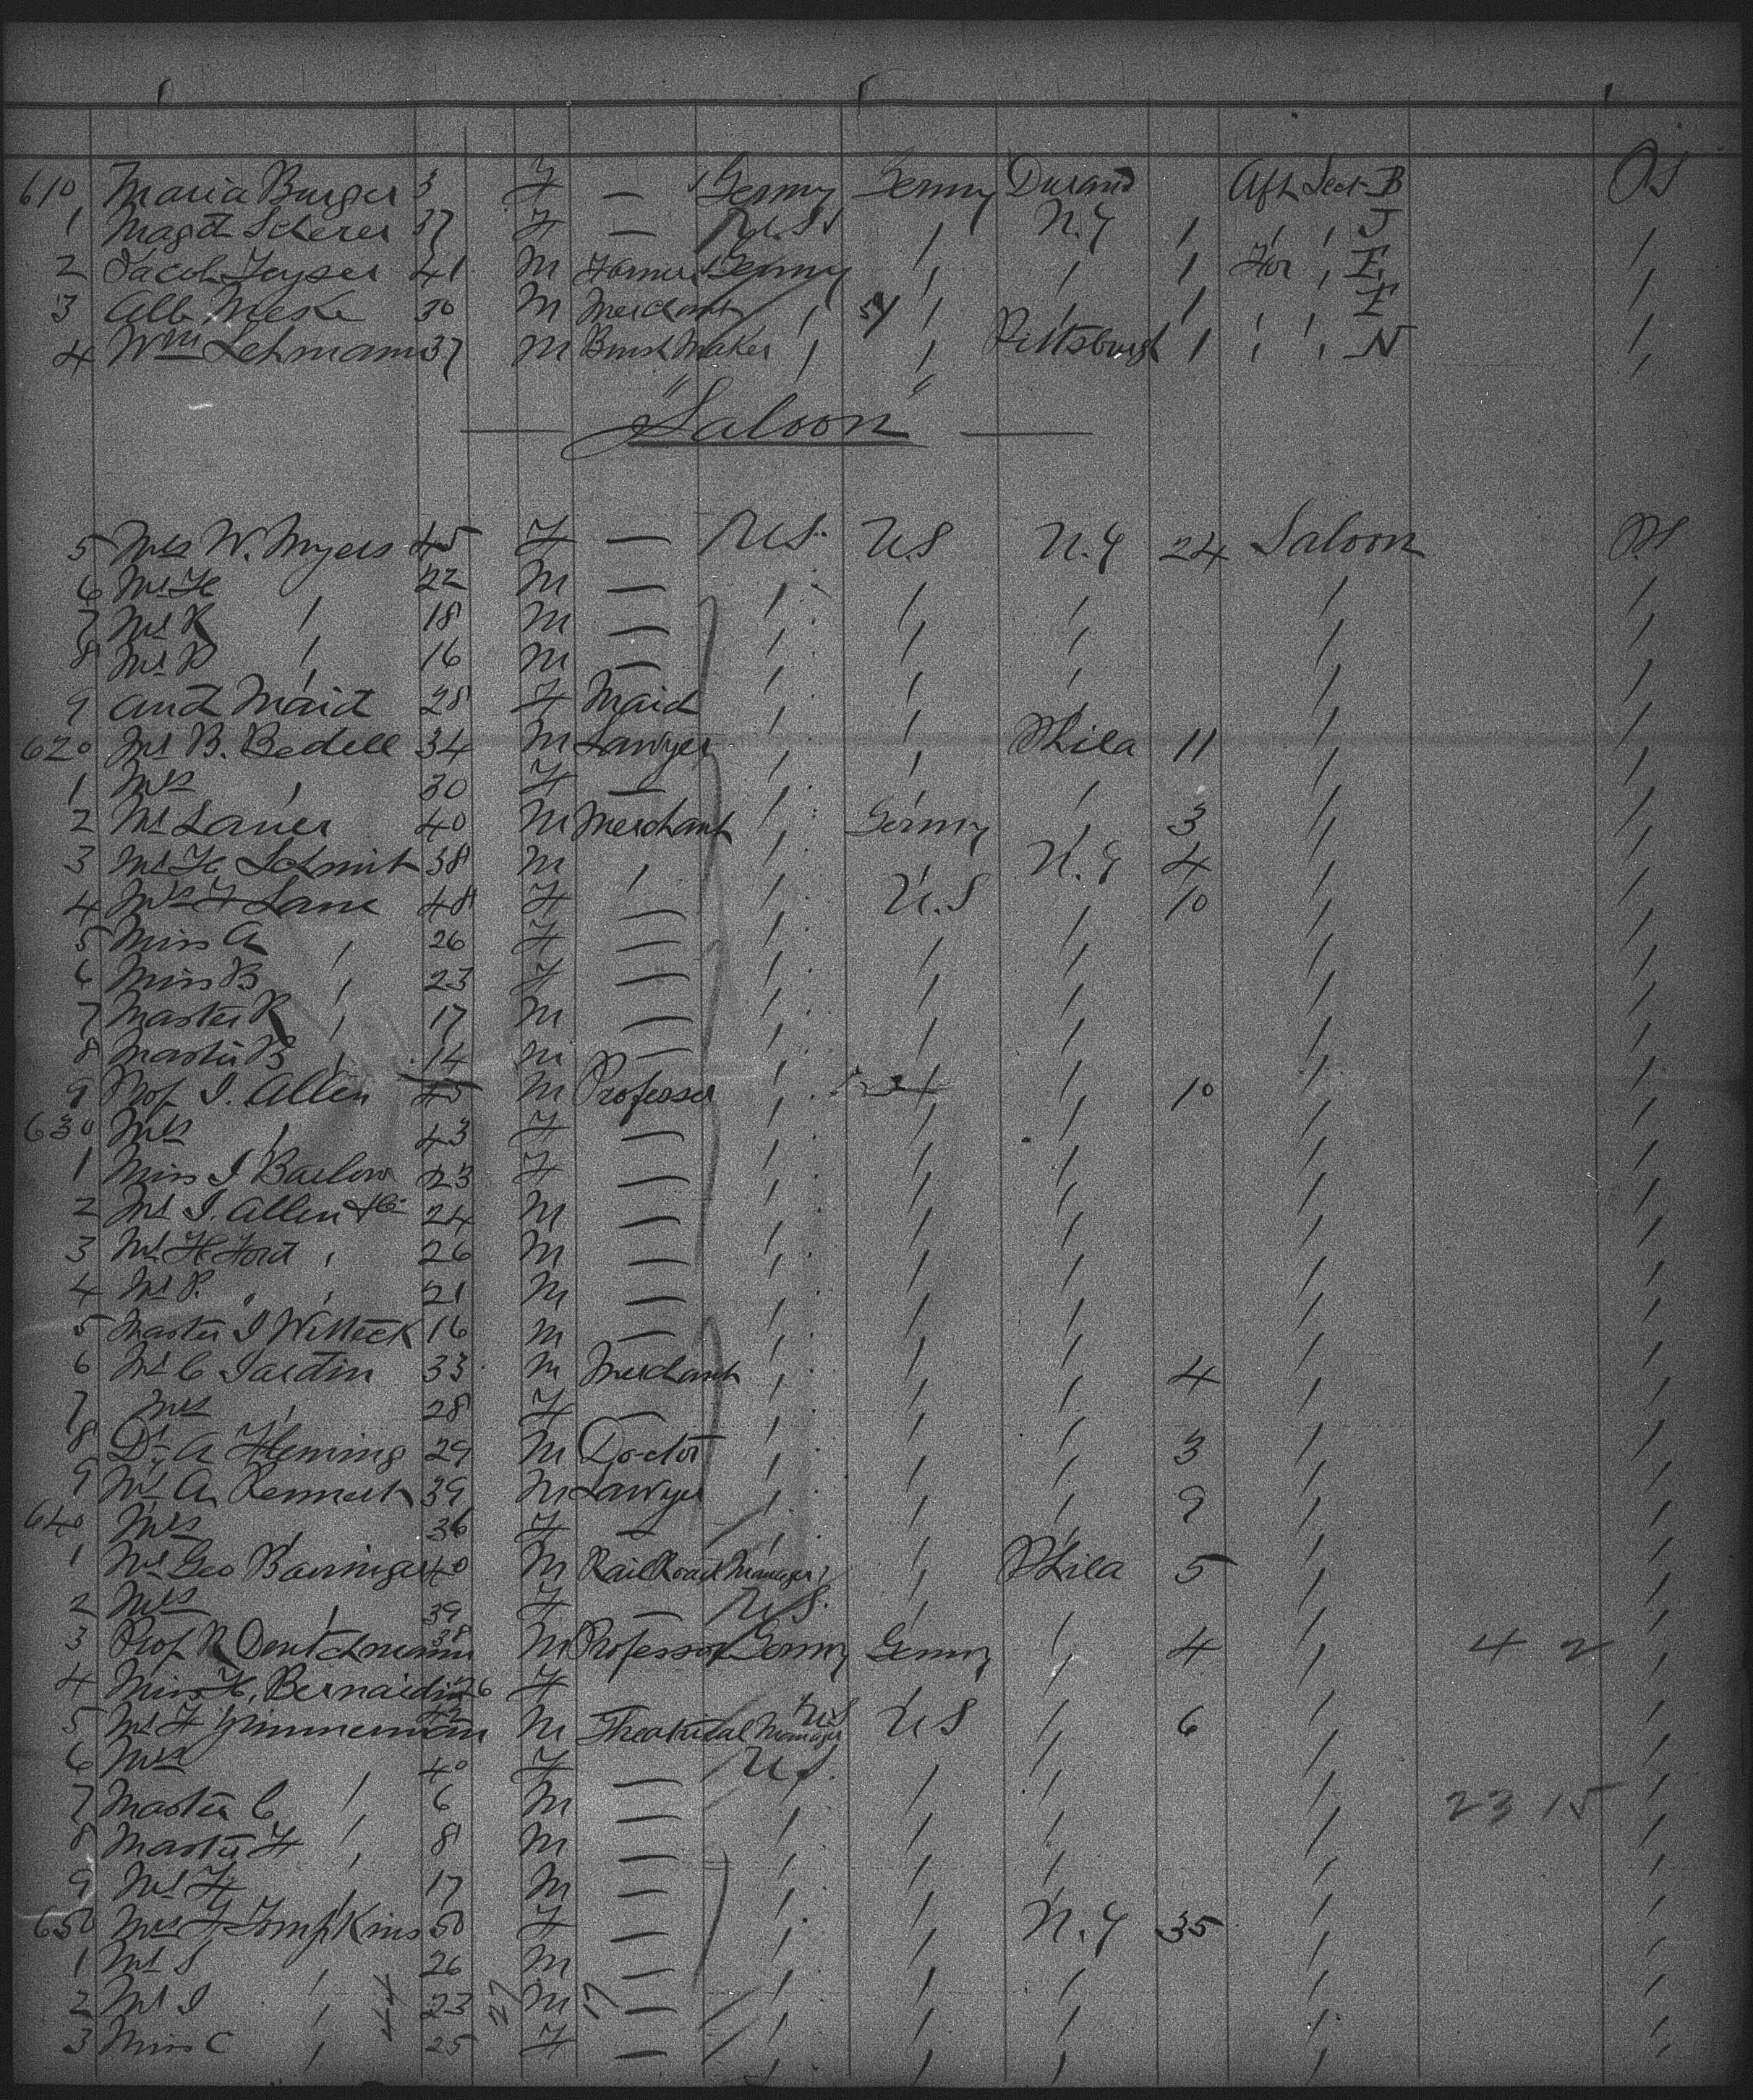 610 Maria Burger 3 F — Germy Germy Durand Aft Sect B
1 Magd Scherer 37 F — U.S. / N.Y / / / J /
2 Jacob 41 M Farmer Germy / / / For / E /
3 Alb Meske 30 M Merchant / / / / E /
4 Wm Lehmann 37 M Brush Maker / / Pittsburgh 1 / / N /
"Saloon"
5 Mrs W. Myers 45 F — U.S. U.S N.Y 24 Saloon
6 Mr H / 22 M — / / / / /
7 Mr R / 18 M — / / / / /
8 Mr P / 16 M — / / / / /
9 and Maid 28 F Maid / / / / /
620 Mr B. Bedell 34 M Lawyer / / Phila 11 / /
1 Mrs / 30 F — / / / / /
2 Mr Lauer 40 M Merchant / Germy / 3 / /
3 Mr H Schmit 38 M / / / N.Y 4 / /
4 Mrs F Lane 48 F — / U.S / 10 / /
5 Miss A / 26 F — / / / / /
6 Miss B / 23 F — / / / / /
7 Master R / 17 M — / / / / /
8 Master B / 14 M — / / / / /
9 Prof I. Allen 45 M Professor / / / 10 / /
630 Mrs / 43 F — / / / / /
1 Miss I Barlow 23 F — / / / / /
2 Mr I. Allen 24 M — / / / / /
3 Mr H Ford / 26 M — / / / / /
4 Mr P. " / 21 M — / / / / /
5 Master I Witteck 16 M — / / / / /
6 Mr C Jardin 33 M Merchant / / / 4 / /
7 Mrs / 28 F — / / / / /
8 Dr A Fleming 29 M Doctor / / / 3 / /
9 Mr A Rennert 39 M Lawyer / / / 9 / /
640 Mrs / 36 F — / / / / /
1 Mr Geo Barringer 40 M Rail Road Manager / / Phila 5 / /
2 Mrs / 39 F — U.S. / / / /
3 Prof R Deutchmann 38 M Professor Germy Germy / 4 / 4 2 /
4 Miss H. Bernardin 26 F / / / /
5 Mr F Zimmermann 42 M Theatrical Manager U.S U S / 6 / /
6 Mrs / 40 F — U.S. / / / /
7 Master C / 6 M — / / / / 23 15 /
8 Master F / 8 M — / / / / /
9 Mr F / 17 M — / / / / /
650 Mrs F Tompkins 50 F — / / N.Y 35 / /
1 Mr S / 26 M — / / / / /
2 Mr I / 23 27 M 17 — / / / / /
3 Miss C / 25 F — / / / / /